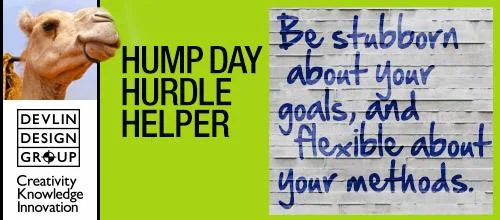 HUMP DAY
HURDLE
HELPER
DEVLIN
DESIGN
GROUP
Creativity
Knowledge
Innovation
Be stubborn
about your
goals, and
flexible about
your methods.